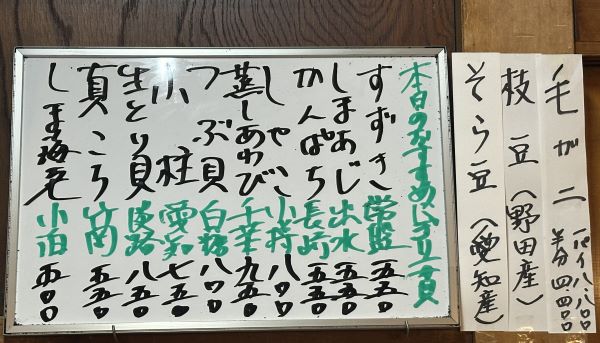 毛がニ 一パイ八、八〇〇 半分四、四〇〇
枝豆(野田産)
そら豆(愛知産)
本日のおすすめにぎり一貫
すずき 常盤 五五〇
しまあじ 出水 五五〇
かんぱち 長崎 五五〇
しゃこ 八〇〇
蒸しあわび 千葉 九五〇
つぶ貝 白糠 八〇〇
小柱 愛知 七五〇
生とり貝 淡路 八五〇
真こち 竹岡 五五〇
しま海老 小泊 五〇〇